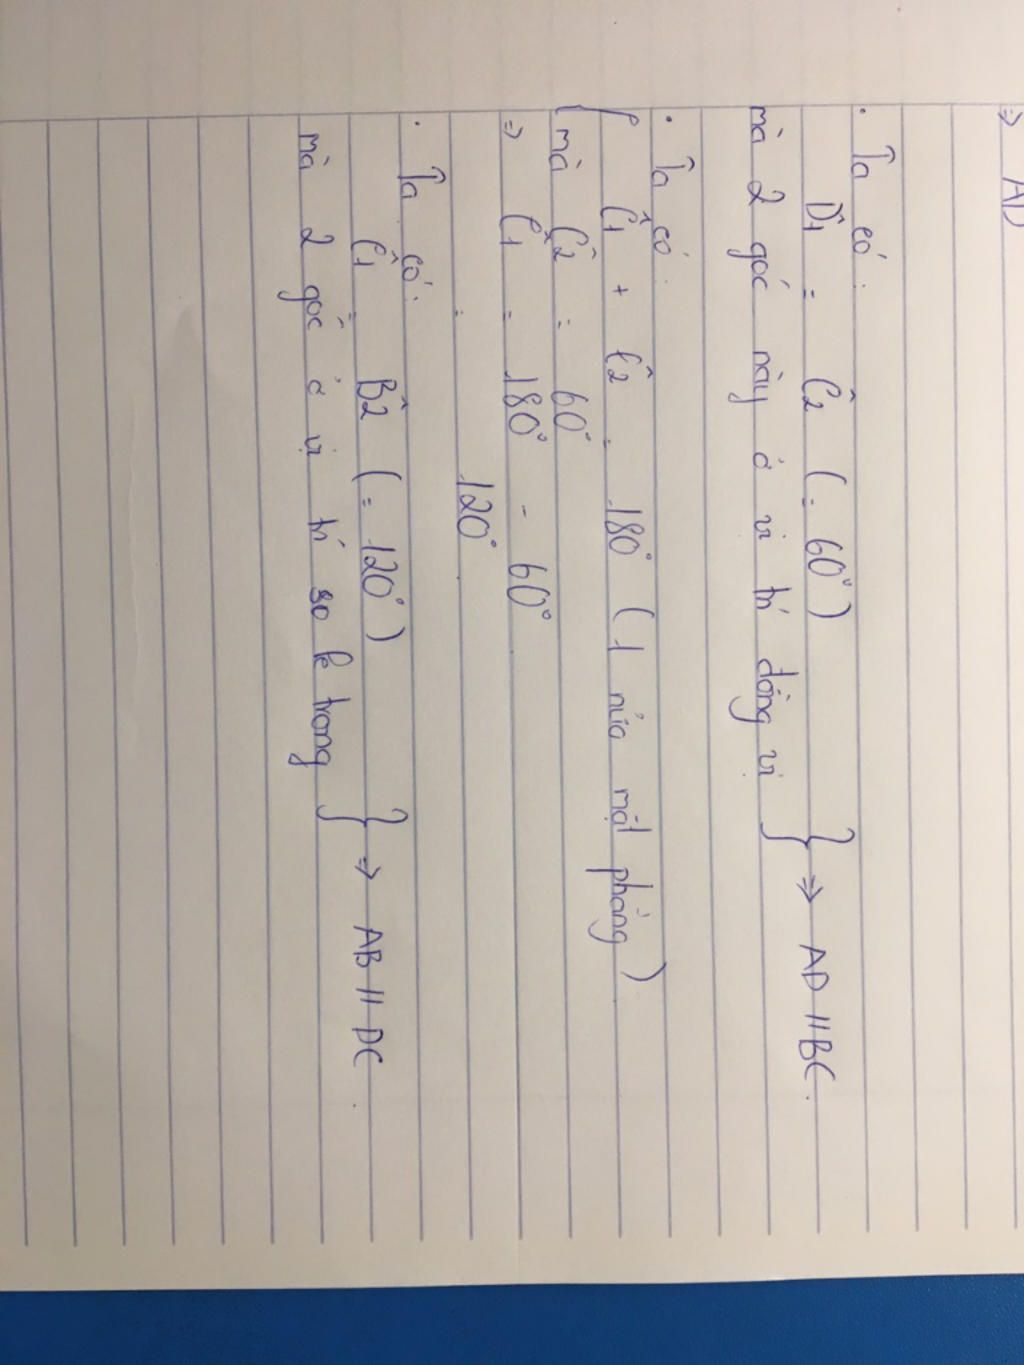 ⇒ AD
. Ta có:
D̂1 = Ĉ2 (= 60°)
mà 2 góc này ở vị trí đồng vị } ⇒ AD // BC.
. Ta có:
{ Ĉ1 + Ĉ2 = 180° (1 nửa mặt phẳng)
mà Ĉ2 = 60°
⇒ Ĉ1 = 180° - 60°
= 120°
. Ta có:
Ĉ1 = B̂2 (= 120°)
mà 2 góc ở vị trí so le trong } ⇒ AB // DC